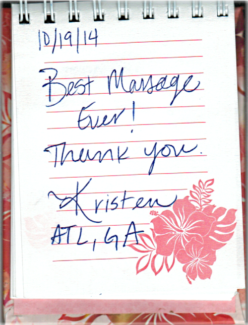 10/19/14
Best Massage
Ever!
Thank you.
~Kristen
ATL, GA